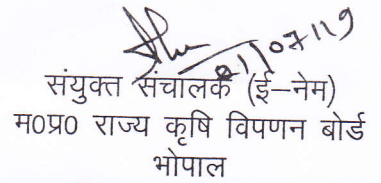 21/07/19
संयुक्त संचालक (ई–नेम)
म0प्र0 राज्य कृषि विपणन बोर्ड
भोपाल